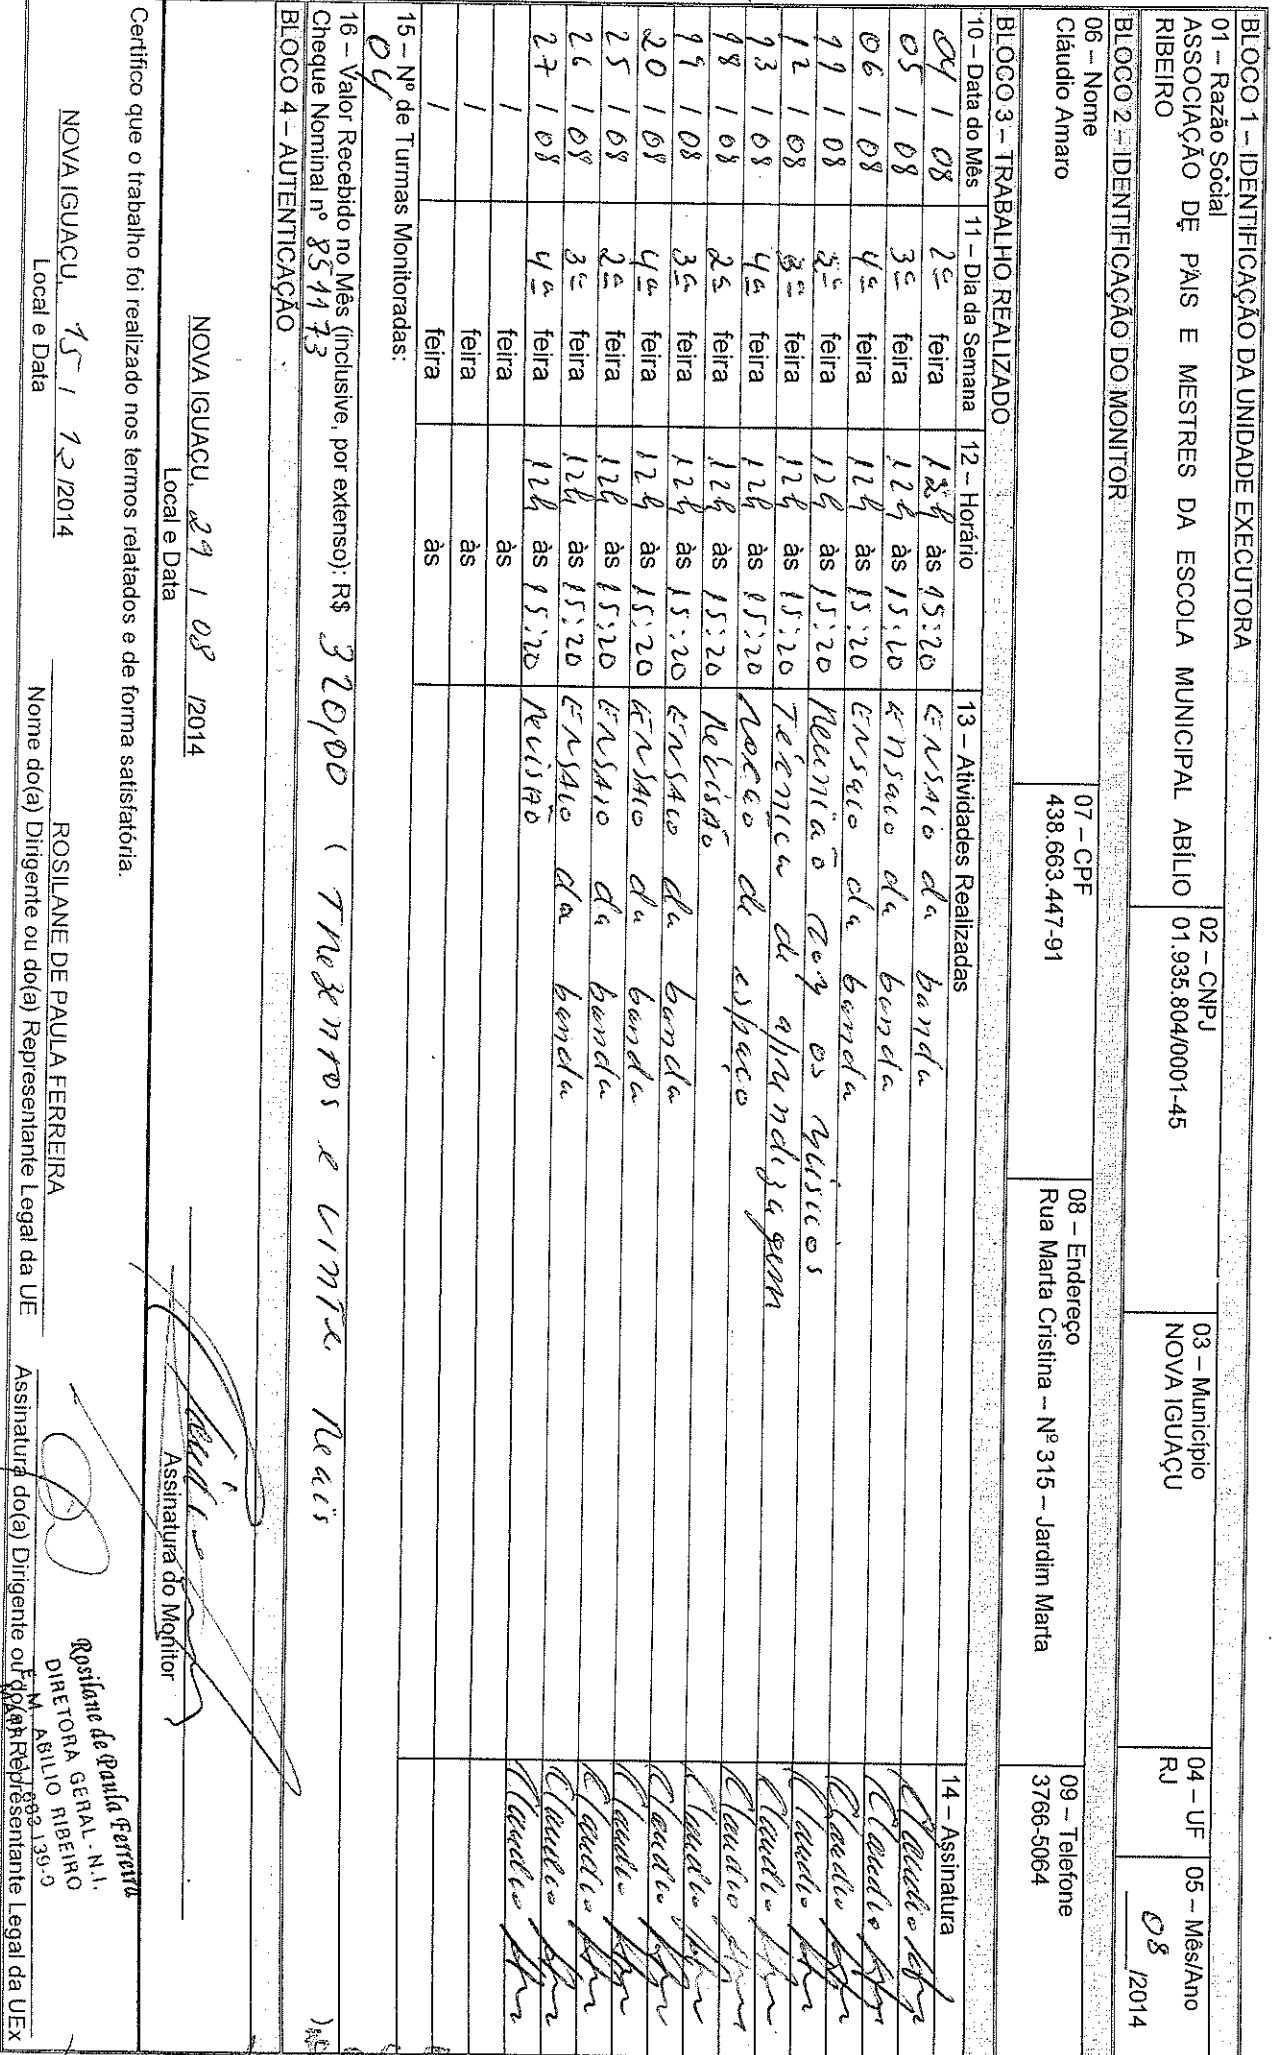 BLOCO 1 – IDENTIFICAÇÃO DA UNIDADE EXECUTORA
01 – Razão Social
ASSOCIAÇÃO DE PAIS E MESTRES DA ESCOLA MUNICIPAL ABÍLIO
RIBEIRO
02 – CNPJ
01.935.804/0001-45
03 – Município
NOVA IGUAÇU
04 – UF
RJ
05 – Mês/Ano
08 /2014
BLOCO 2 – IDENTIFICAÇÃO DO MONITOR
06 – Nome
Cláudio Amaro
07 – CPF
438.663.447-91
08 – Endereço
Rua Marta Cristina – Nº 315 – Jardim Marta
09 – Telefone
3766-5064
BLOCO 3 – TRABALHO REALIZADO
10 – Data do Mês 11 – Dia da Semana 12 – Horário 13 – Atividades Realizadas 14 – Assinatura
04 / 08 2ª feira 12h às 15:20 Ensaio da banda Claudio
05 / 08 3ª feira 12h às 15:20 Ensaio da banda Claudio
06 / 08 4ª feira 12h às 15:20 Ensaio da banda Claudio
11 / 08 2ª feira 12h às 15:20 Reunião com os músicos Claudio
12 / 08 3ª feira 12h às 15:20 Técnica de aprendizagem Claudio
13 / 08 4ª feira 12h às 15:20 Noção de espaço Claudio
18 / 08 2ª feira 12h às 15:20 Revisão Claudio
19 / 08 3ª feira 12h às 15:20 Ensaio da banda Claudio
20 / 08 4ª feira 12h às 15:20 Ensaio da banda Claudio
25 / 08 2ª feira 12h às 15:20 Ensaio da banda Claudio
26 / 08 3ª feira 12h às 15:20 Ensaio da banda Claudio
27 / 08 4ª feira 12h às 15:20 Revisão Claudio
/ feira às
/ feira às
/ feira às
15 – Nº de Turmas Monitoradas:
04
16 – Valor Recebido no Mês (inclusive, por extenso): R$ 320,00 ( Trezentos e vinte Reais )
Cheque Nominal nº 851173
BLOCO 4 – AUTENTICAÇÃO
NOVA IGUAÇU, 29 / 08 /2014
Local e Data
Assinatura do Monitor
Certifico que o trabalho foi realizado nos termos relatados e de forma satisfatória.
NOVA IGUAÇU, 15 / 12 /2014
Local e Data
ROSILANE DE PAULA FERREIRA
Nome do(a) Dirigente ou do(a) Representante Legal da UE
Assinatura do(a) Dirigente ou do(a) Representante Legal da UEx
Rosilane de Paula Ferreira
DIRETORA GERAL - N.I.
E.M. ABILIO RIBEIRO